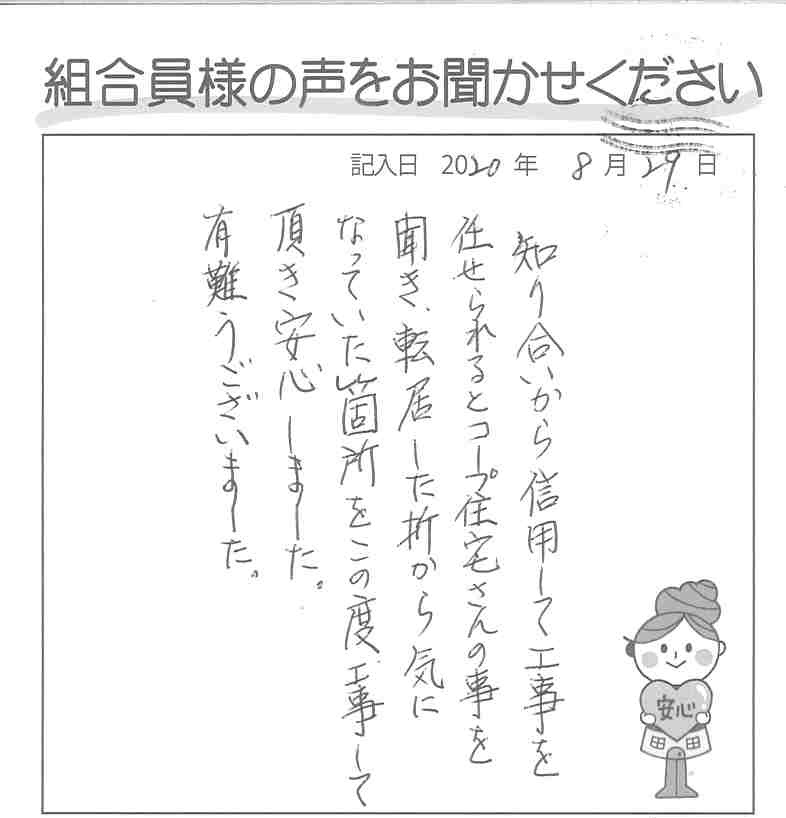 組合員様の声をお聞かせください
記入日 2020年 8月29日
知り合いから信用して工事を
任せられるとコープ住宅さんの事を
聞き、転居した折から気に
なっていた箇所をこの度工事して
頂き安心しました。
有難うございました。
安心